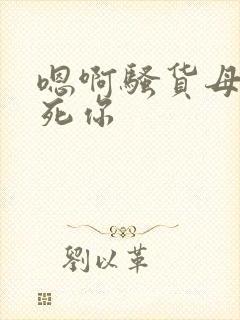 嗯啊骚货母
死你
劉以革